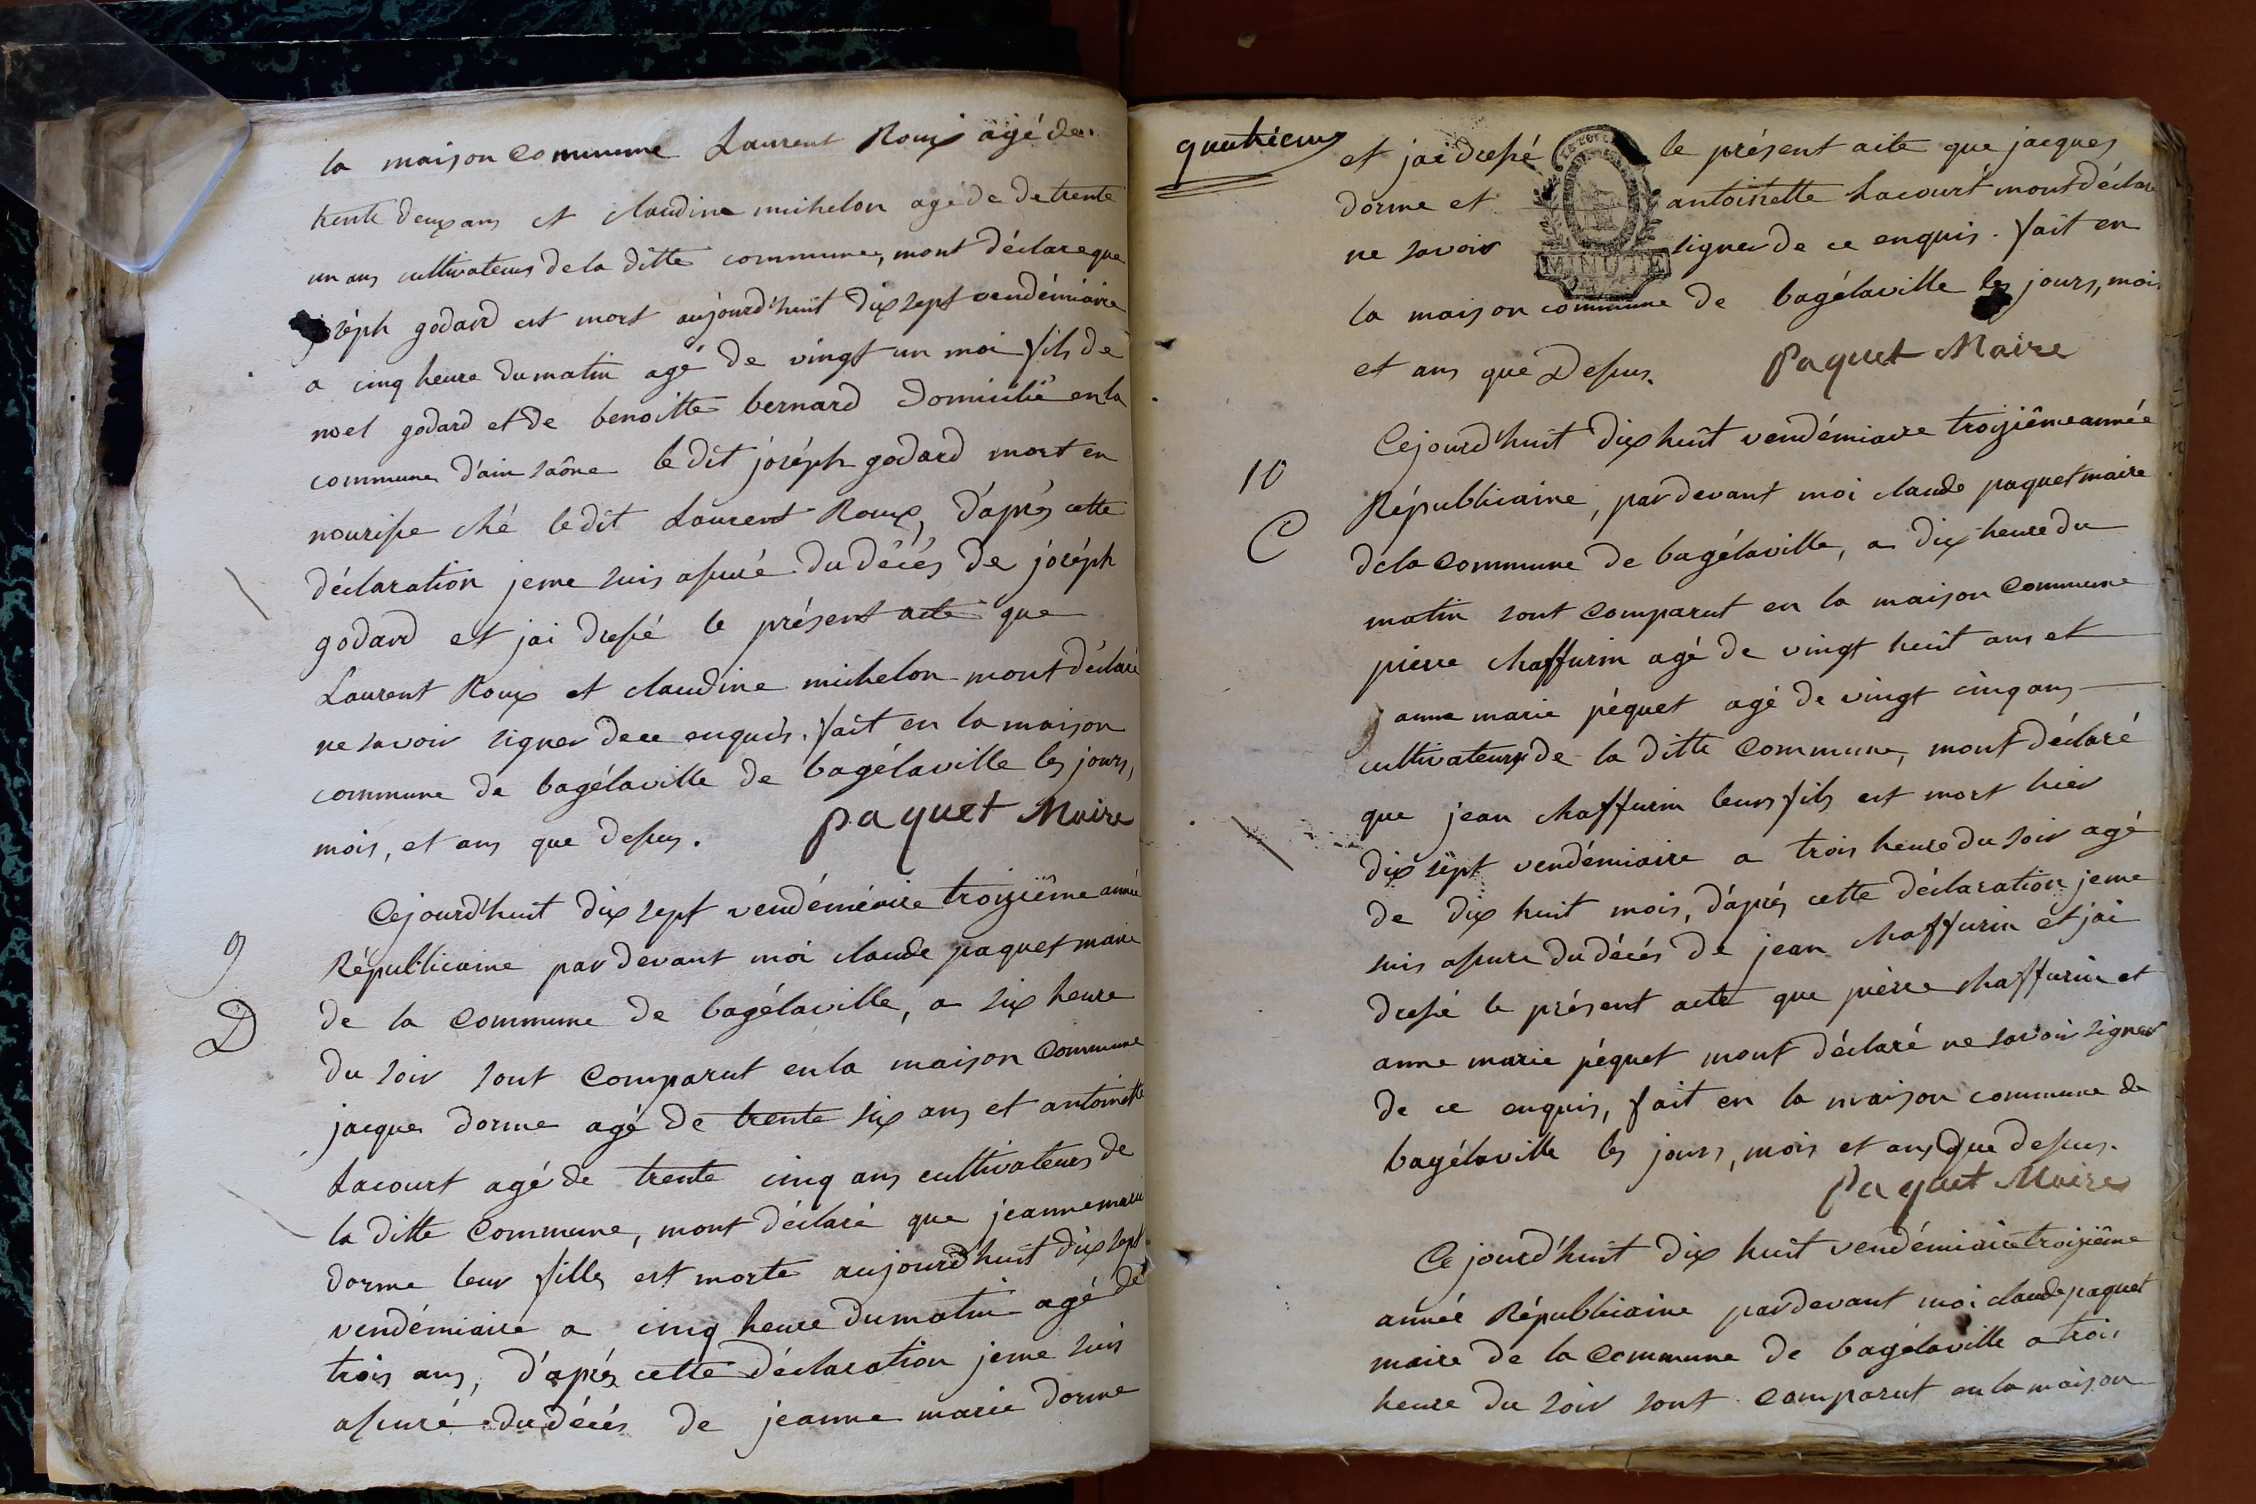 la maison commune Laurent Roux agé de
trente deux ans et claudine michelon agé de de trente
un ans cultivateurs de la ditte commune, mont déclare que
joséph godard est mort aujourd'huit dix sept vendémiaire
a cinq heure du matin agé de vingt un moi fils de
noel godard et de benoitte bernard domicilié en la
commune d'ain saône le dit joséph godard mort en
nourisse ché le dit Laurent Roux, d'aprés cette
déclaration je me suis assuré du décés de joséph
godard et jai dressé le présent acte que
Laurent Roux et claudine michelon mont déclaré
ne savoir signer de ce enquis. fait en la maison
commune de bagélaville de bagélaville les jours,
mois, et ans que dessus. paquet Maire
Cejourd'huit dix sept vendéméraire troiziême année
9
Républicaine par devant moi claude paquet maire
D
de la commune de bagélaville, a six heure
du soir sont comparut en la maison commune
jacque dorme agé de trente six ans et antoinette
Lacourt agé de trente cinq ans cultivateurs de
la ditte commune, mont déclaré que jeanne marie
dorme leur fille est morte aujourd'huit dix sept
vendémiaire a cinq heure du matin agé de
trois ans, d'aprés cette déclaration je me suis
assuré du décés de jeanne marie dorme
quatrieme
et jai dressé le présent acte que jacques
dorme et antoinette Lacourt mont déclaré
ne savoir signer de ce enquis. fait en
MINUTE
la maison commune de bagélaville les jours, mois
et ans que Dessus. Paquet Maire
Cejourd'huit dix huit vendémiaire troiziême année
10
Républicaine, par devant moi claude paquet maire
C
de la commune de bagélaville, a dix heure du
matin sont comparut en la maison commune
pierre chaffurin agé de vingt huit ans et
anne marie péquet agé de vingt cinq ans
cultivateurs de la ditte commune, mont déclaré
que jean chaffurin leurs fils est mort hier
dix sept vendémiaire a trois heure du soir agé
de dix huit mois, d'aprés cette déclaration je me
suis assure du décés de jean chaffurin et jai
dressé le présent acte que pierre chaffurin et
anne marie péquet mont déclaré ne savoir signer
de ce enquis, fait en la maison commune de
bagélaville les jours, mois et ans que dessus.
Paquet Maire
Ce jourd'huit dix huit vendémiaire troiziême
année Républicaine par devant moi claude paquet
maire de la commune de bagélaville a trois
heure du soir sont comparut en la maison